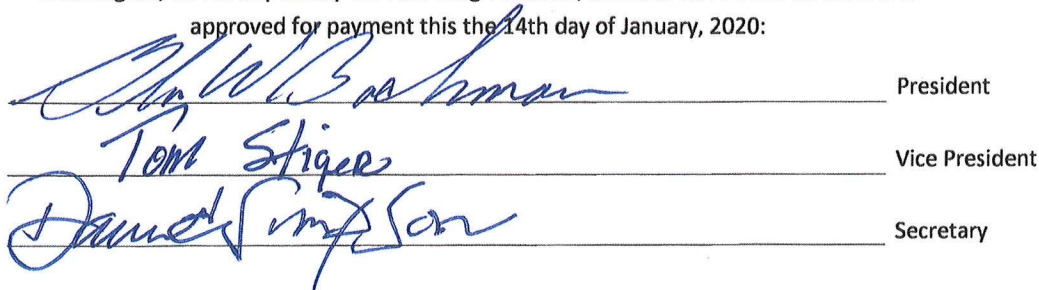 approved for payment this the 14th day of January, 2020:
W Bachman President
Tom Stiger Vice President
Simpson Secretary